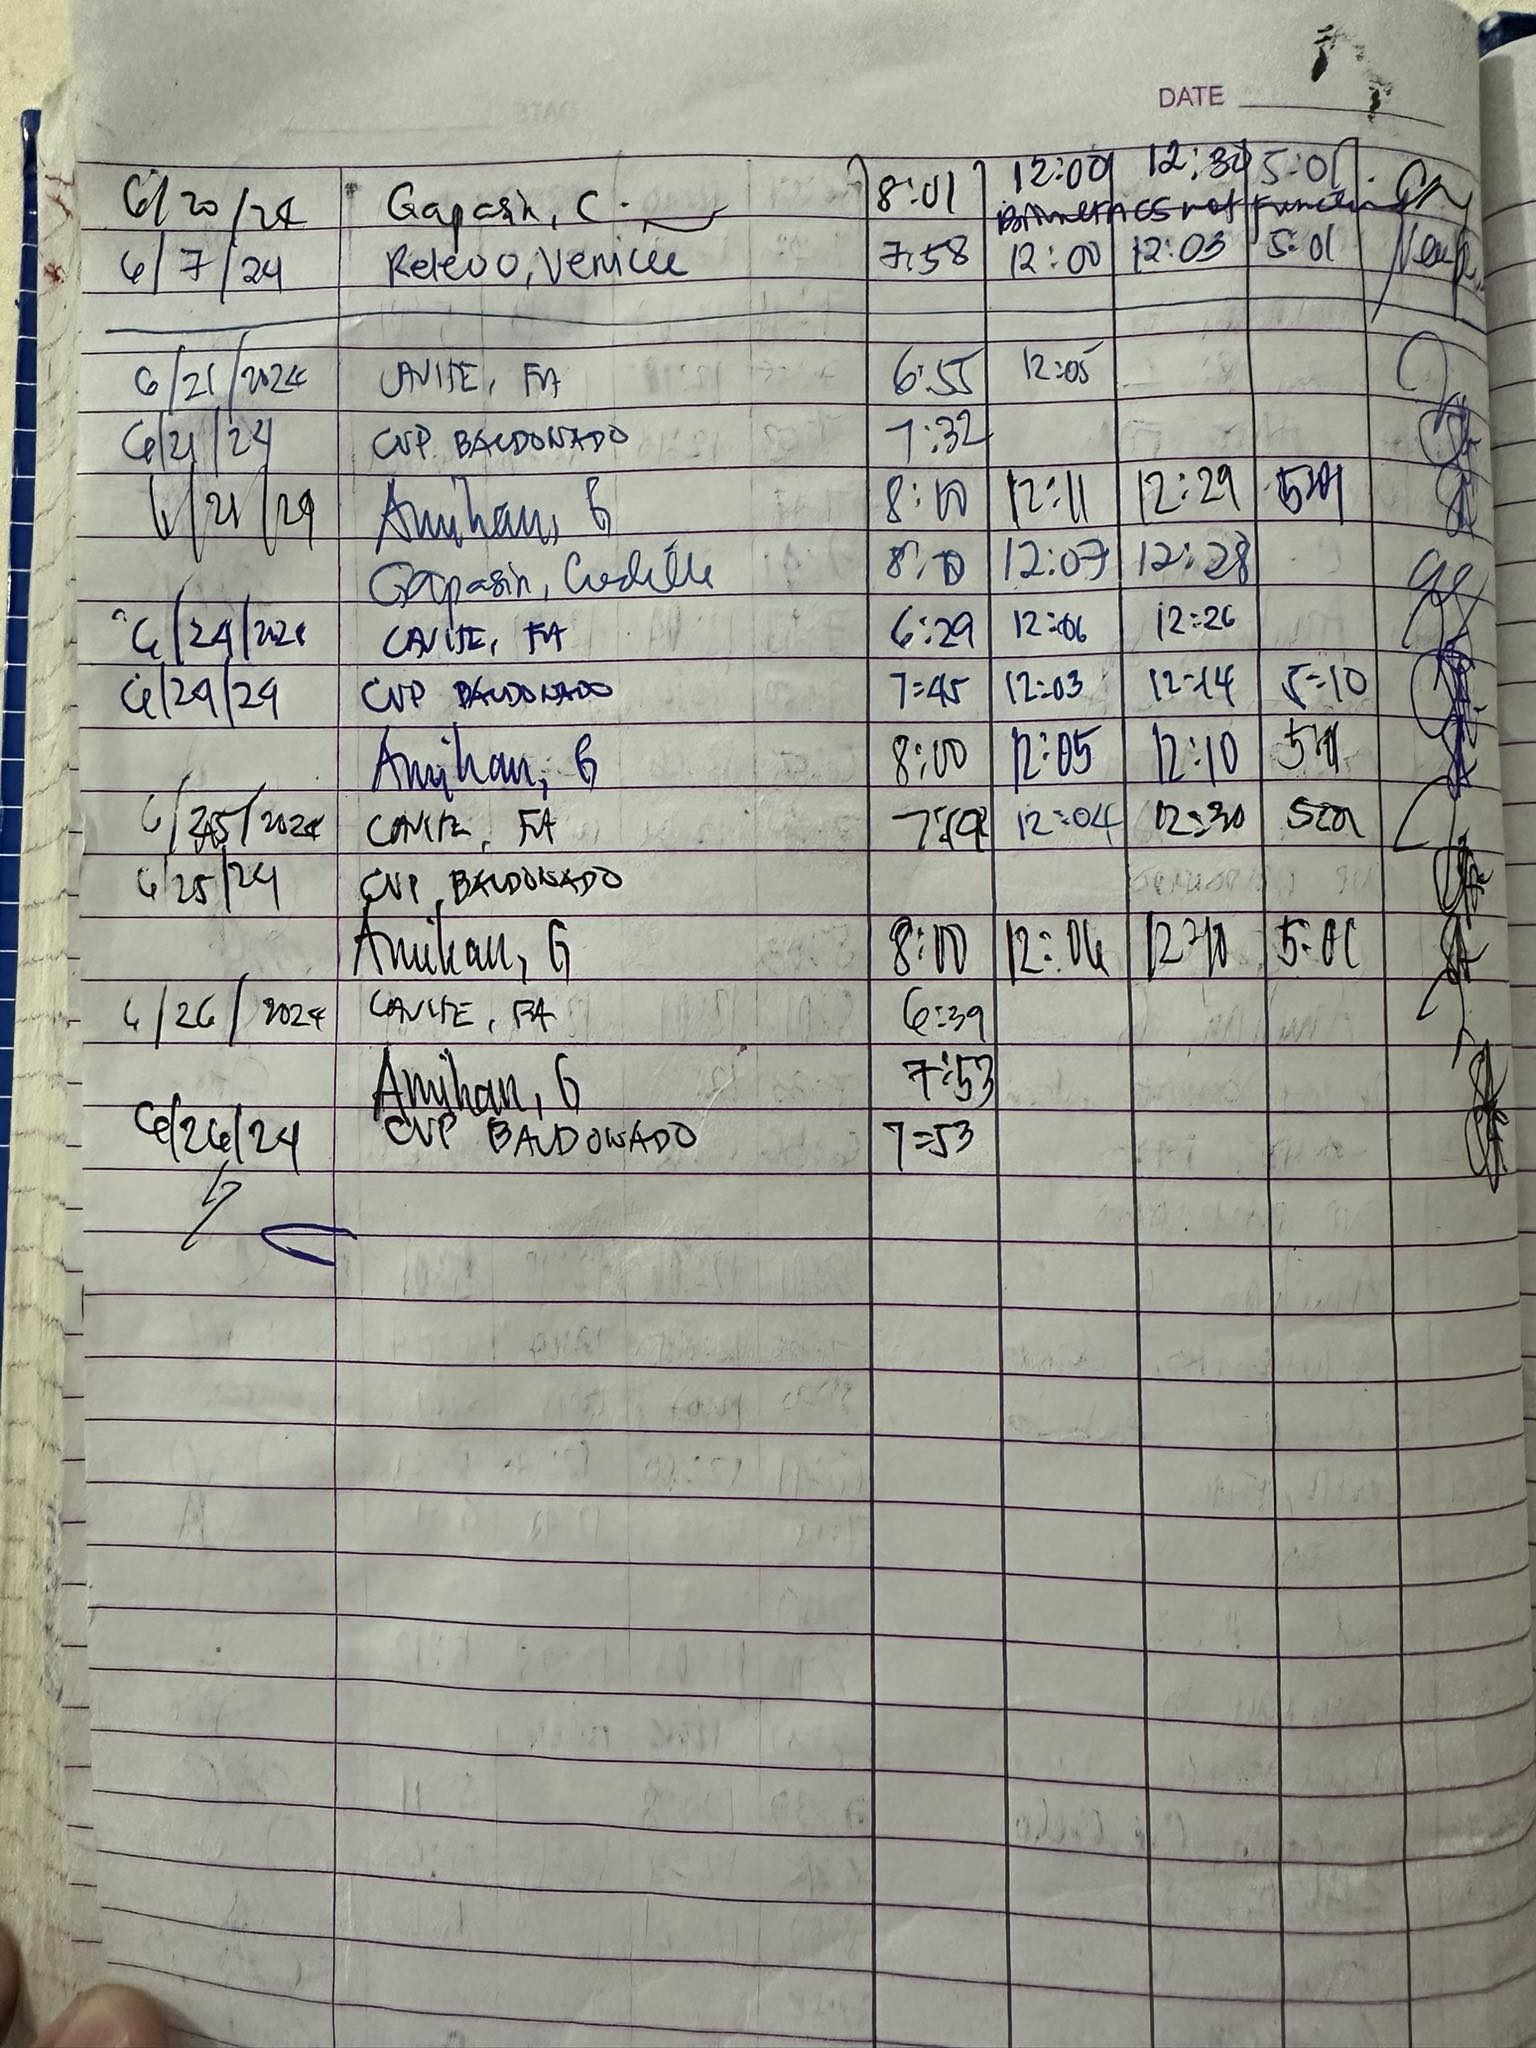 DATE
6/20/24 Gapasin, C. 8:01 12:00 12:30 5:01
Biometrics not function
6/7/24 Relevo, Venicee 7:58 12:00 12:03 5:01
6/21/2024 CAVITE, FA 6:55 12:05
6/21/24 CVP BALDONADO 7:32
6/21/24 Amihan, G 8:00 12:11 12:29 5:01
Gapasin, 12:07 12:28
6/24/2024 CAVITE, FA 6:29 12:06 12:26
6/24/24 CVP BALDONADO 7:45 12:03 12:14 5:10
Amihan, G 8:00 12:05 12:10 5:01
6/25/2024 CAVITE, FA 12:04 12:30 5:01
6/25/24 CVP BALDONADO
Amihan, G 8:00 12:06 12:10 5:01
6/26/2024 CAVITE, FA 6:39
Amihan, G 7:53
6/26/24 CVP BALDONADO 7:53